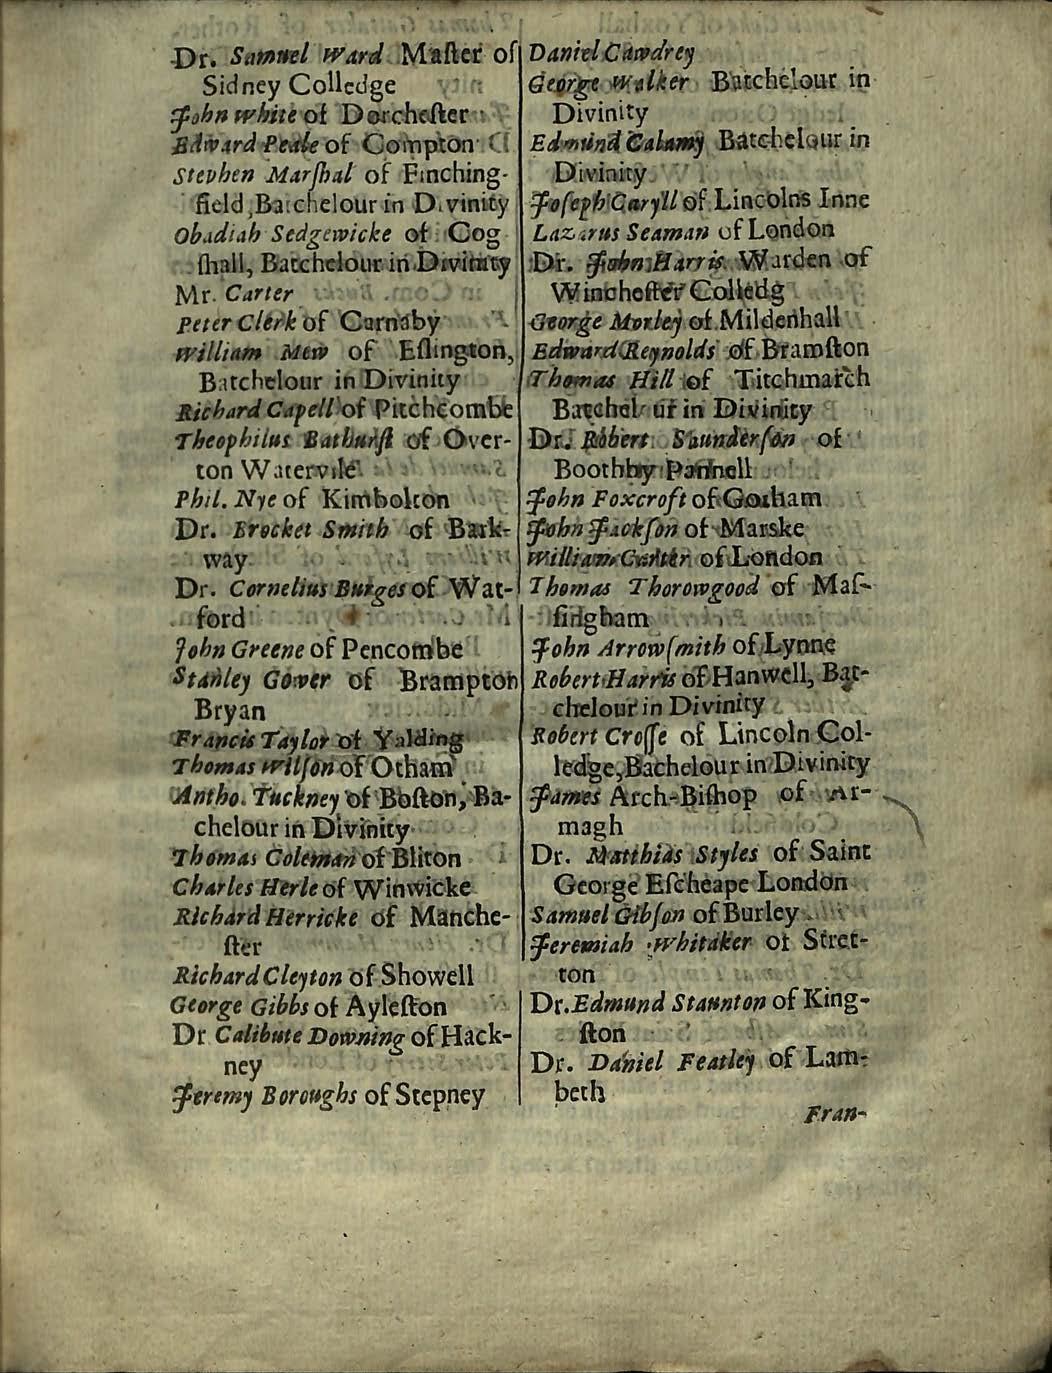 Dr. Samuel Ward Maſter of
Sidney Colledge
John White of Dorcheſter
Edward Peale of Compton
Stephen Marſhal of Finching-
field, Batchelour in Divinity
Obadiah Sedgewicke of Cog
ſhall, Batchelour in Divinity
Mr. Carter
Peter Clerk of Carnaby
William Mew of Eſlington,
Batchelour in Divinity
Richard Capell of Pitchcombe
Theophilus Bathurſt of Over-
ton Watervile
Phil. Nye of Kimbolton
Dr. Brocket Smith of Bark-
way
Dr. Cornelius Burges of Wat-
ford
John Greene of Pencombe
Stanley Gower of Brampton
Bryan
Francis Taylor of Yalding
Thomas Wilſon of Otham
Antho. Tuckney of Boſton, Ba-
chelour in Divinity
Thomas Coleman of Bliton
Charles Herle of Winwicke
Richard Herricke of Manche-
ſter
Richard Cleyton of Showell
George Gibbs of Ayleſton
Dr Calibute Downing of Hack-
ney
Jeremy Boroughs of Stepney
Daniel Cawdrey
George Walker Batchelour in
Divinity
Edmund Calamy Batchelour in
Divinity
Joſeph Caryll of Lincolns Inne
Lazarus Seaman of London
Dr. John Harris Warden of
Wincheſter Colledg
George Morley of Mildenhall
Edward Reynolds of Bramſton
Thomas Hill of Titchmarch
Batchelour in Divinity
Dr. Robert Saunderſon of
Boothby Pannell
John Foxcroft of Gotham
John Jackſon of Marske
William Carter of London
Thomas Thorowgood of Maſ-
ſingham
John Arrowſmith of Lynne
Robert Harris of Hanwell, Bat-
chelour in Divinity
Robert Croſſe of Lincoln Col-
ledge, Bachelour in Divinity
James Arch-Biſhop of Ar-
magh
Dr. Matthias Styles of Saint
George Eſcheape London
Samuel Gibſon of Burley
Jeremiah Whitaker of Stret-
ton
Dr. Edmund Staunton of King-
ſton
Dr. Daniel Featley of Lam-
beth
Fran-